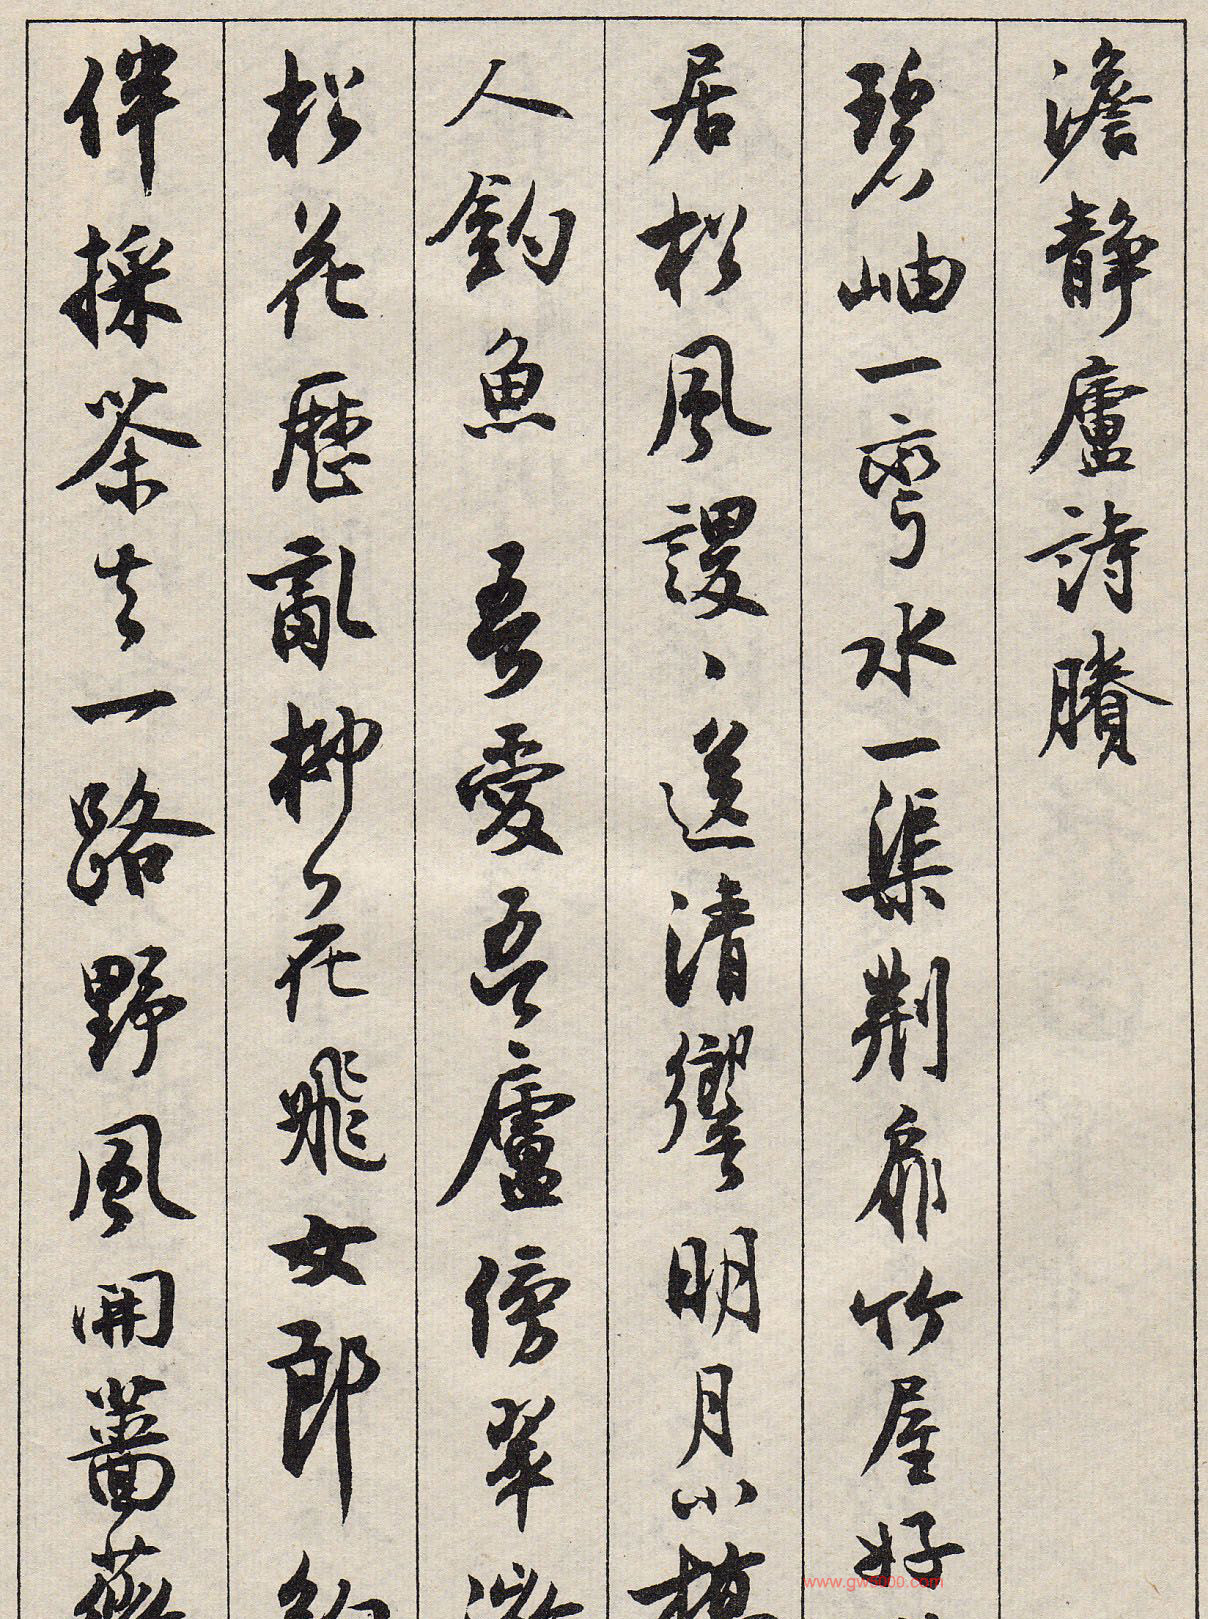 澹静廬詩賸
碧岫一彎水一渠荆扉竹屋好
居松風謖、送清響明月小橋
人釣魚 吾愛吾廬傍翠微
松花歷亂柳花飛女郎約
伴採茶去一路野風開薔薇
www.gw5000.com